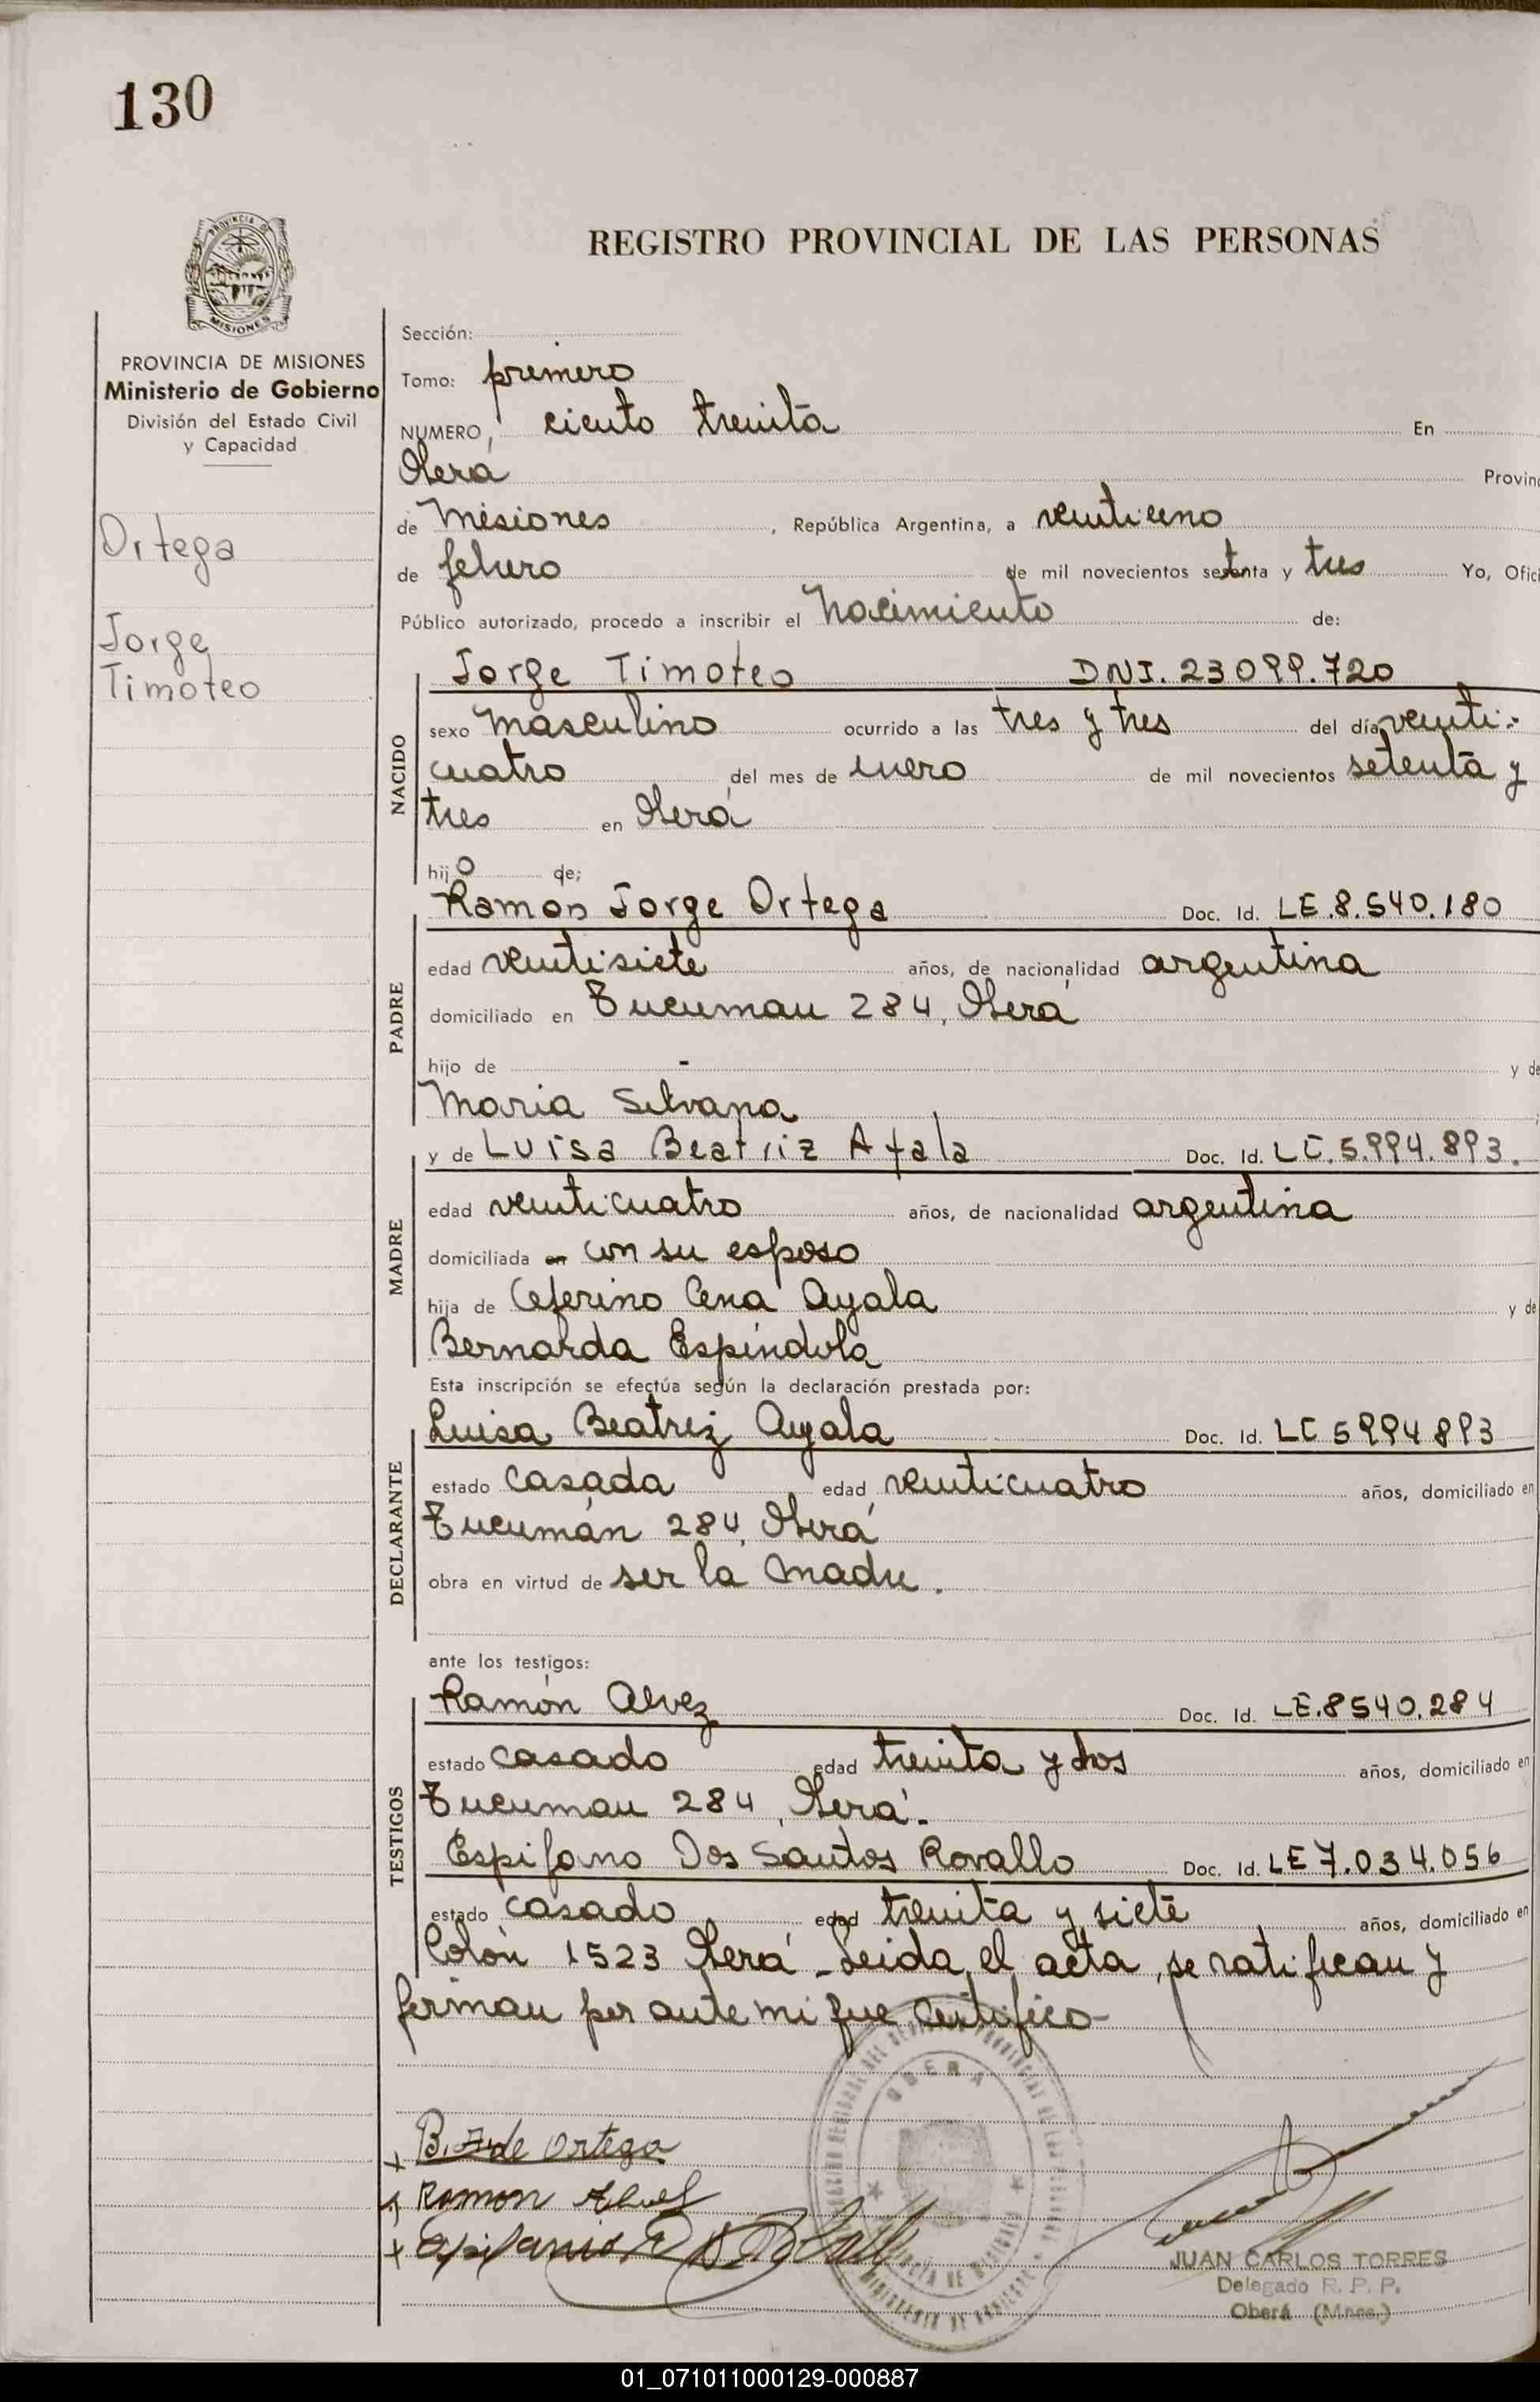 130
REGISTRO PROVINCIAL DE LAS PERSONAS
PROVINCIA
MISIONES
PROVINCIA DE MISIONES
Ministerio de Gobierno
División del Estado Civil
y Capacidad
Ortega
Jorge
Timoteo
Sección:
Tomo: primero
NUMERO, ciento treinta En
Oberá Provinc
de Misiones, República Argentina, a veintiuno
de febrero de mil novecientos setenta y tres Yo, Ofici
Público autorizado, procedo a inscribir el Nacimiento de:
NACIDO
Jorge Timoteo DNI. 23099.720
sexo Masculino ocurrido a las tres y tres del día veinti-
cuatro del mes de enero de mil novecientos setenta y
tres en Oberá
hijo de;
PADRE
Ramon Jorge Ortega Doc. Id. LE.8.540.180
edad veintisiete años, de nacionalidad argentina
domiciliado en Tucuman 284, Oberá
hijo de - y de
Maria Silvana
MADRE
y de Luisa Beatriz Ayala Doc. Id. LC.5.994.893.
edad veinticuatro años, de nacionalidad argentina
domiciliada en con su esposo
hija de Ceferino Cená Ayala y de
Bernarda Espíndola
Esta inscripción se efectúa según la declaración prestada por:
DECLARANTE
Luisa Beatriz Ayala Doc. Id. LC 5994893
estado casada edad veinticuatro años, domiciliado en
Tucumán 284, Oberá
obra en virtud de ser la madre.
ante los testigos:
TESTIGOS
Ramón Alvez Doc. Id. LE.8540.284
estado casado edad treinta y dos años, domiciliado en
Tucuman 284, Oberá.-
Espifano Dos Santos Rovallo Doc. Id. LE 7.034.056
estado casado edad treinta y siete años, domiciliado en
Colón 1523 Oberá - Leida el acta, se ratifican y
firman por ante mi que certifico-
OBERA
B. A de Ortega
Ramon Alvez
Epifanio D
JUAN CARLOS TORRES
Delegado R. P. P.
Oberá (Mnes.)
01_071011000129-000887